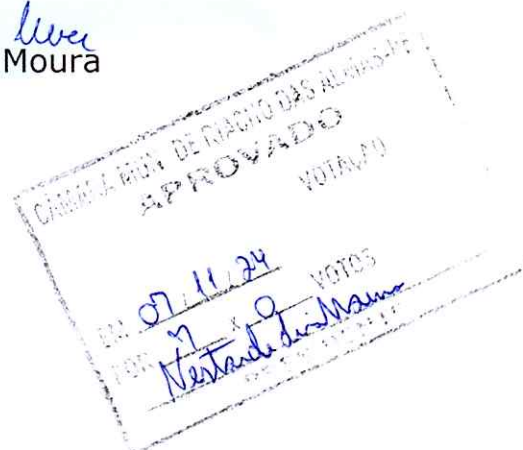 Moura
CÂMARA MUN. DE RIACHO DAS ALMAS-PE
APROVADO
VOTAÇÃO
EM 07/11/24
POR x 0 VOTOS
PRESIDENTE